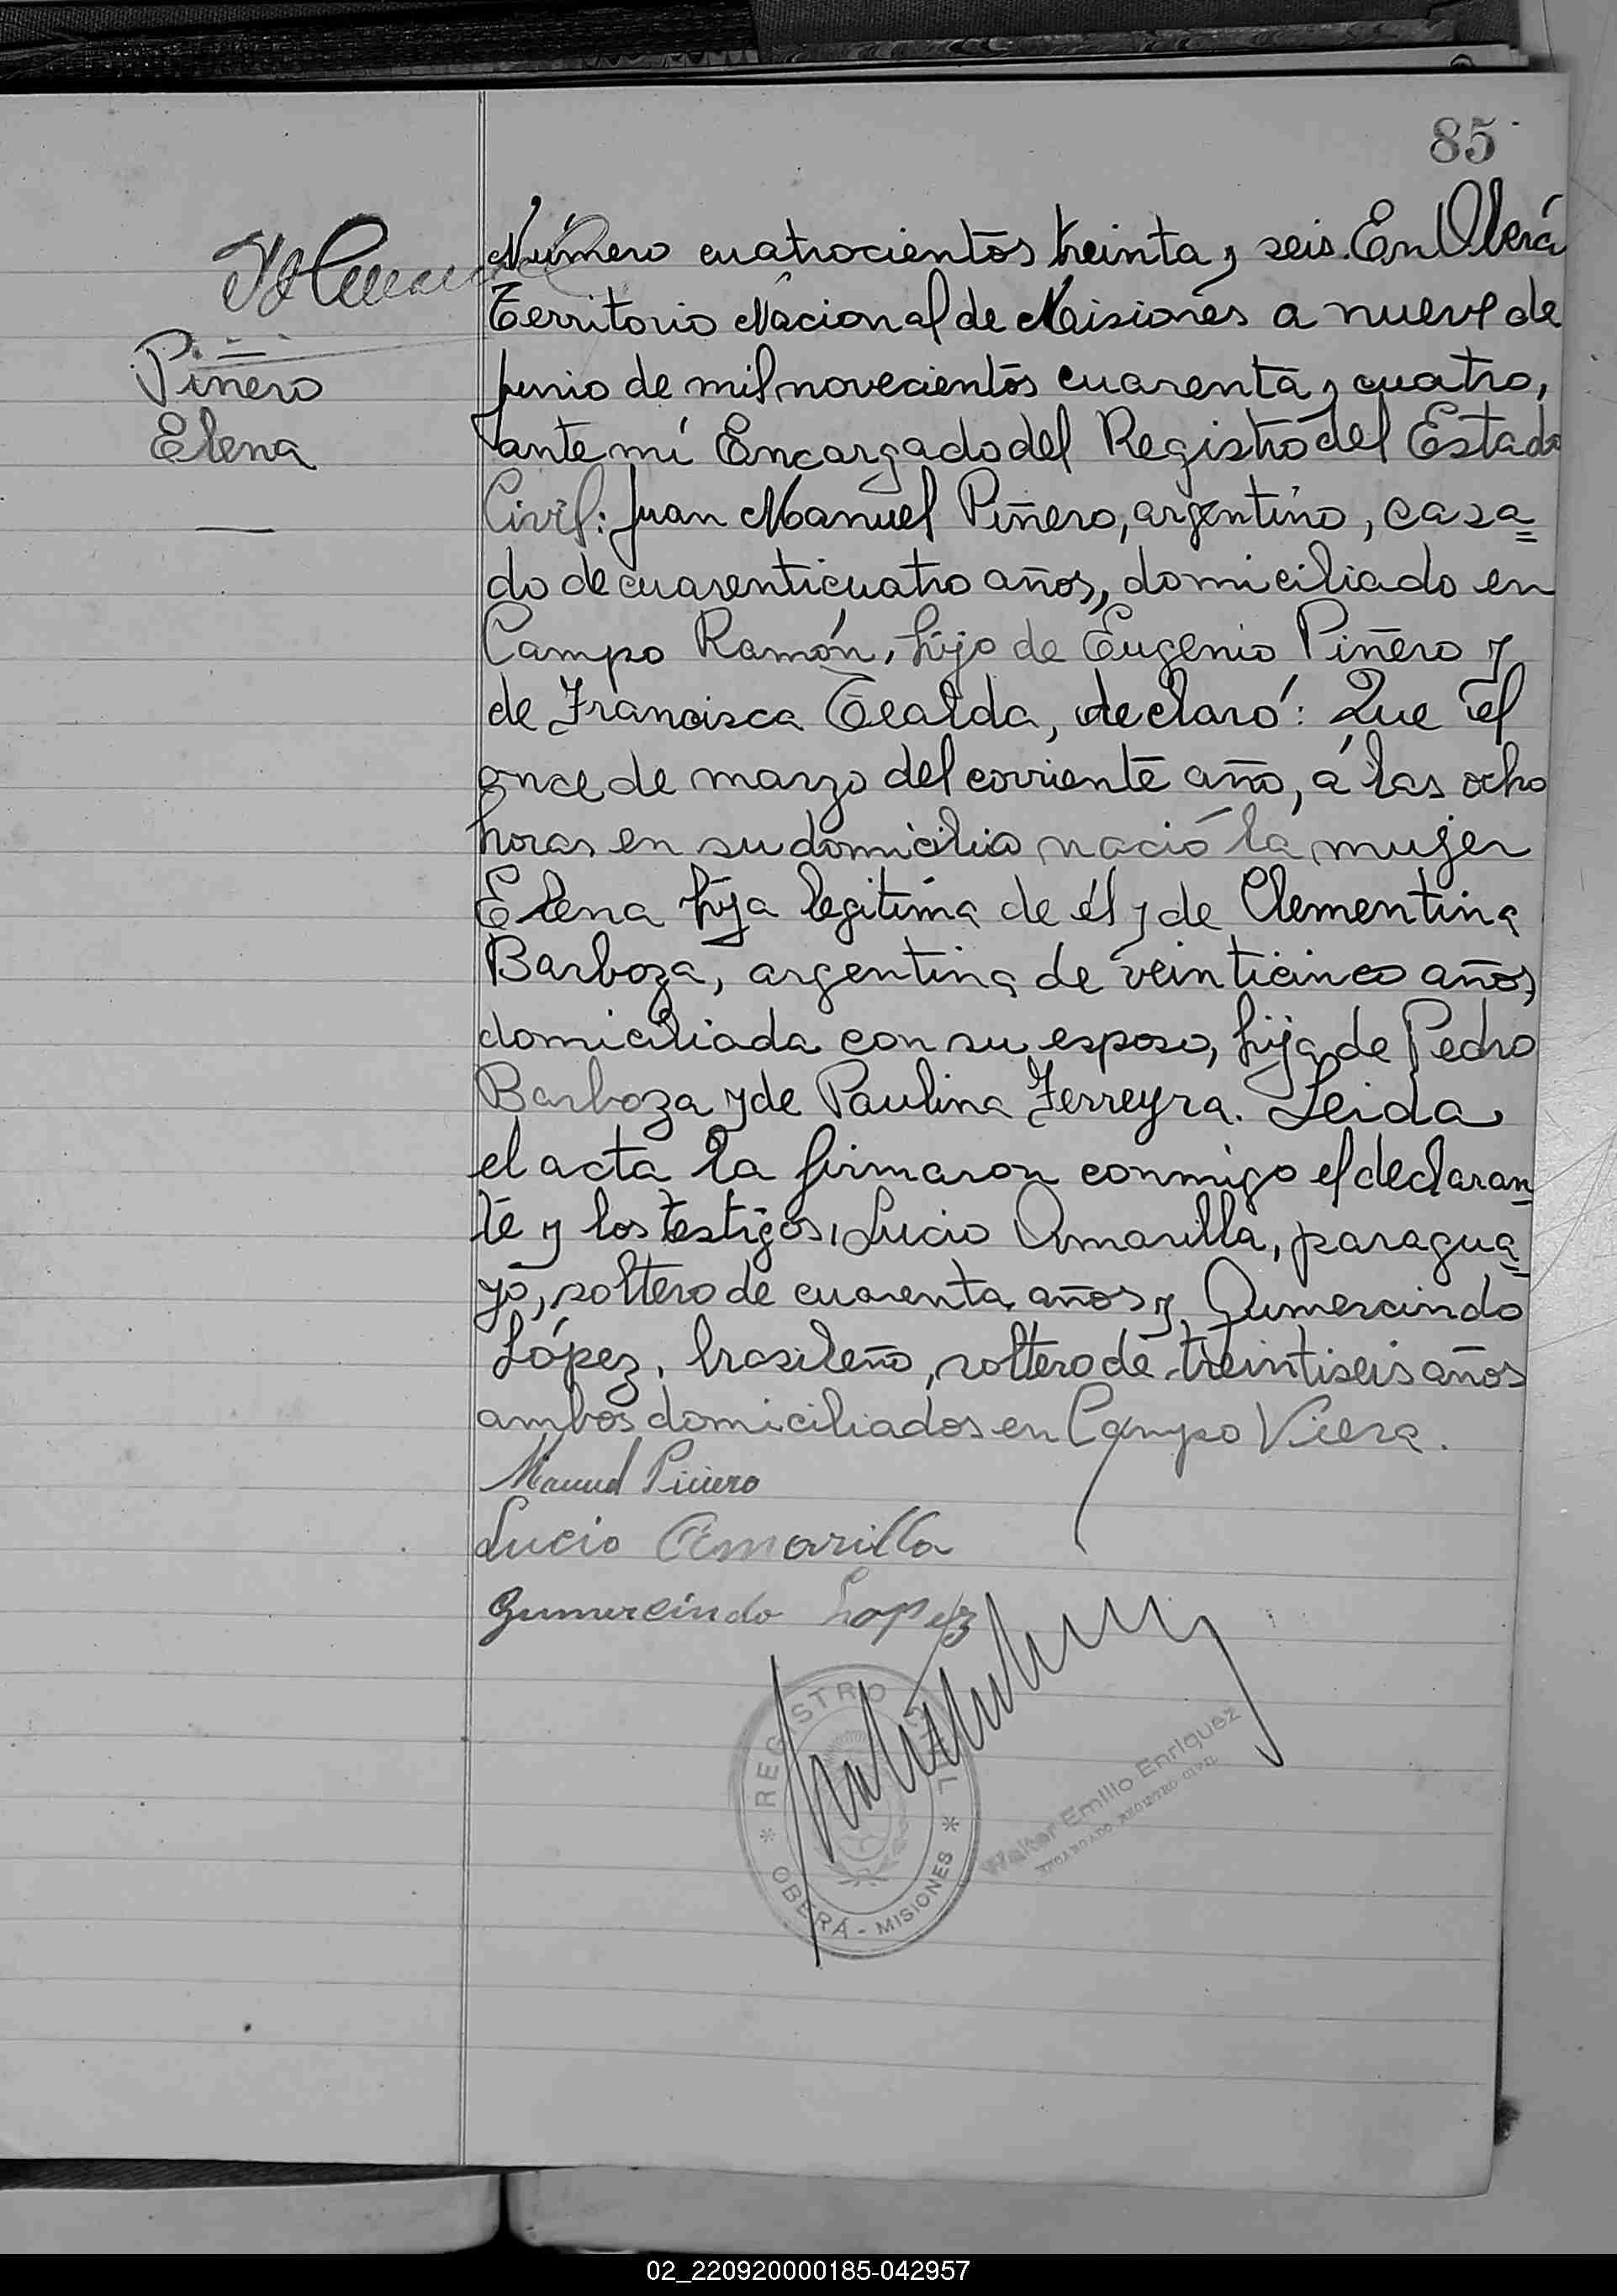 85
Número cuatrocientos treinta y seis. En Oberá
Territorio Nacional de Misiones a nueve de
Piñero
junio de mil novecientos cuarenta y cuatro,
Elena
ante mí Encargado del Registro del Estado
Civil: Juan Manuel Piñero, argentino, casa=
do de cuarenticuatro años, domiciliado en
Campo Ramón, hijo de Eugenio Piñero y
de Francisca Tealda, declaró: Que el
once de marzo del corriente año, á las ocho
horas en su domicilio nació la mujer
Elena hija legitima de él y de Clementina
Barboza, argentina de veinticinco años,
domiciliada con su esposo, hija de Pedro
Barboza y de Paulina Ferreyra. Leida
el acta la firmaron conmigo el declaran=
te y los testigos, Lucio Amarilla, paragua=
yo, soltero de cuarenta años y Gumercindo
López, brasileño, soltero de treintiseis años
ambos domiciliados en Campo Viera.
Manuel Piñero
Lucio Amarilla
Gumercindo Lopez
REGISTRO CIVIL
* OBERÁ - MISIONES *
Walter Emilio Enriquez
ENCARGADO REGISTRO CIVIL
02_220920000185-042957